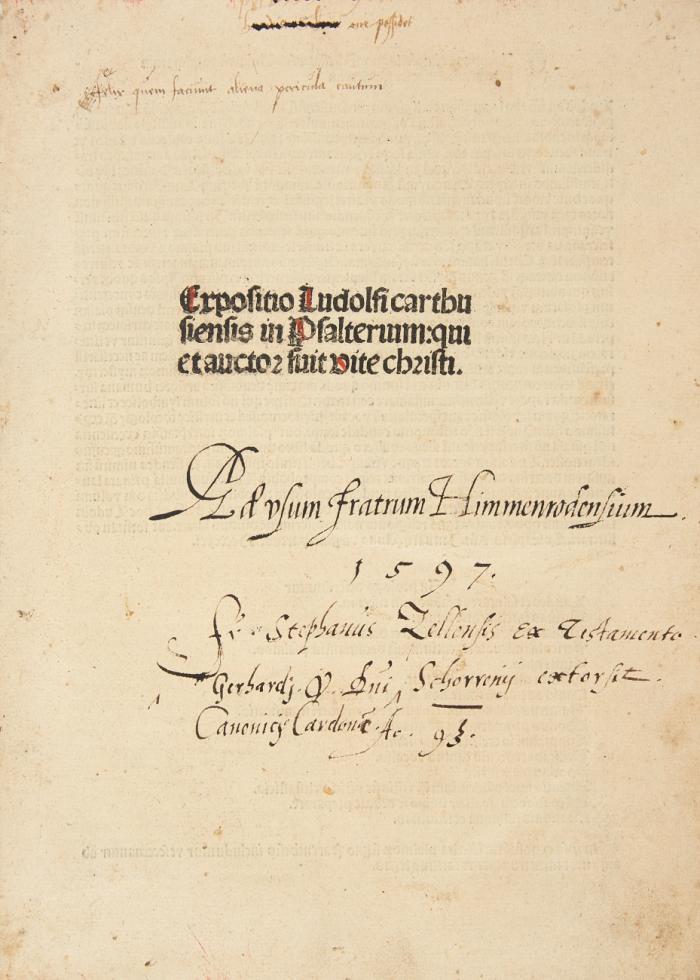 me possidet
felix quem faciunt aliena pericula cautum
Expositio Ludolfi carthu
siensis in Psalterium: qui
et auctor fuit vite christi.
Ad vsum fratrum Himmenrodensium.
1597.
Fr. Stephanus Zellensis ex Testamento
Gerhardj Schorrenij extorsit.
Canonicj Cardon 93.